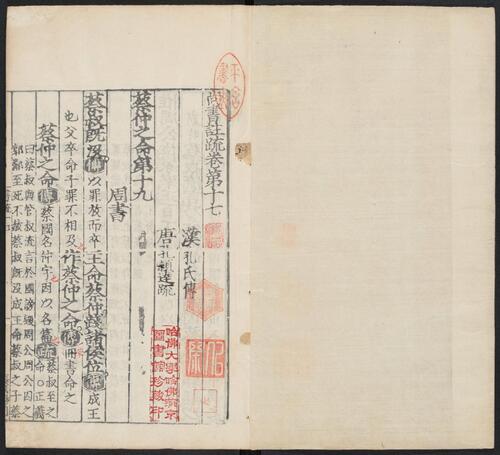 尚書註疏卷第十七
漢孔氏傳
唐孔穎達疏
蔡仲之命第十九
周書
蔡叔既沒以罪放而卒王命蔡仲踐諸侯位成王
也父卒命子罪不相及作蔡仲之命冊書命之
蔡仲之命蔡國名仲字因以名篇
蔡叔至之命○正義
曰蔡叔與管叔流言於國謗毀周公周公囚之
郭鄰至死不赦蔡叔既沒成王命蔡叔之子蔡
哈佛大學哈佛燕京
圖書館珍藏印